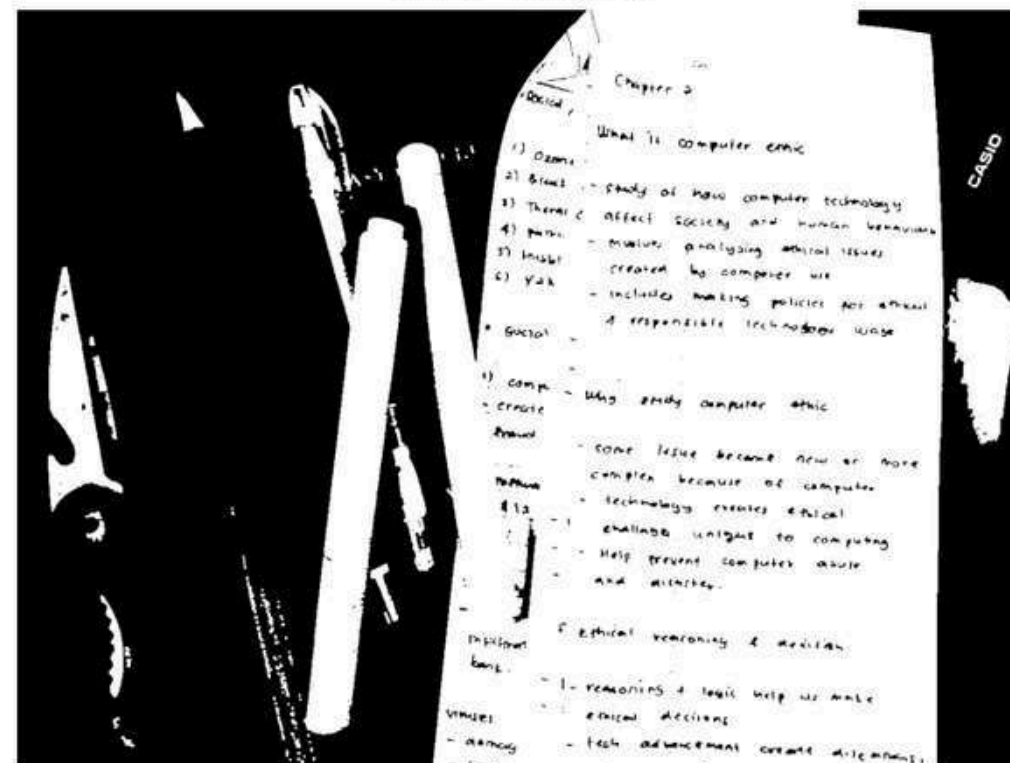 Chapter 2
What is computer ethic
- study of how computer technology
affect society and human behaviour
- involves analyzing ethical issues
created by computer use
- includes making policies for ethical
& responsible technology usage
- Why study computer ethic
- some issue became new or more
complex because of computer
- technology creates ethical
challenges unique to computing
- Help prevent computer abuse
and disaster.
Ethical reasoning & decision
- reasoning & logic help us make
ethical decisions
- tech advancement create dilemmas
social
1) Ozone
2)
3)
4)
5)
6)
social
1) comp
- create
viruses
CASIO